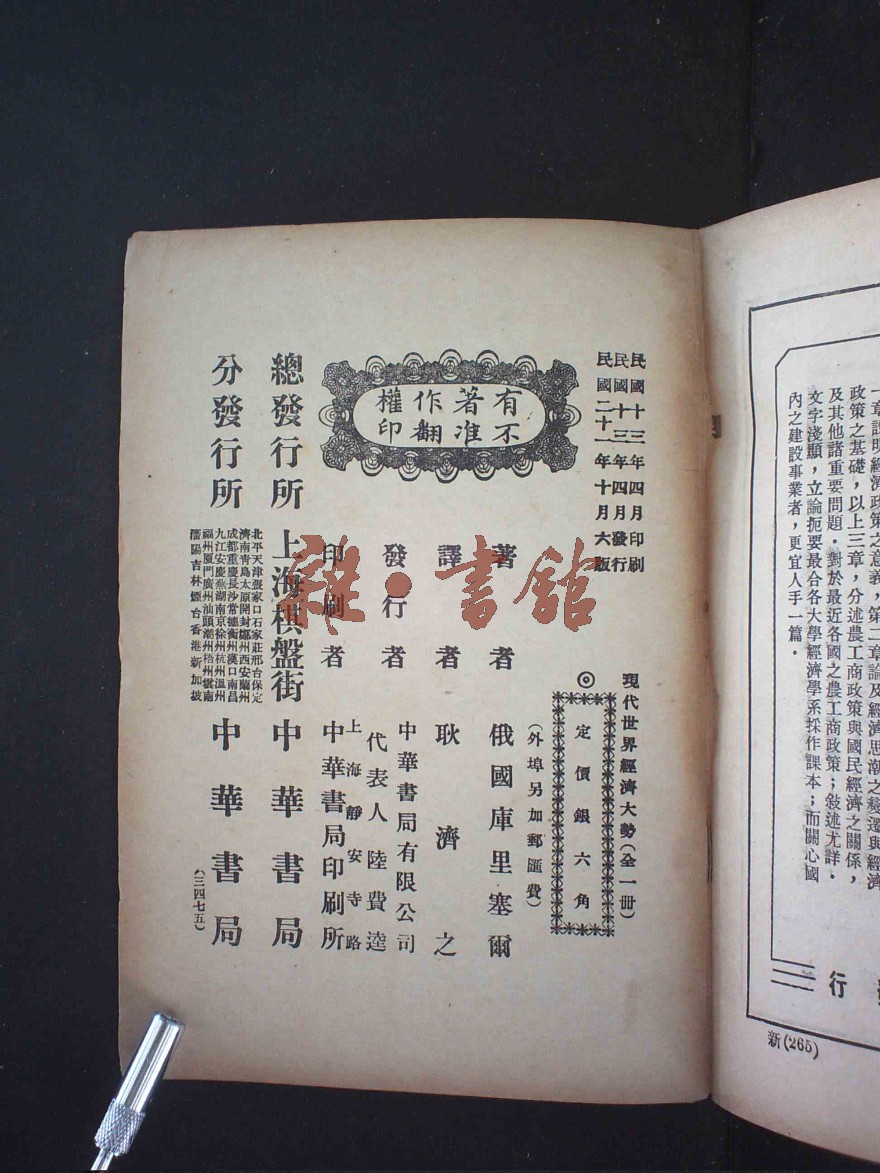 民國十三年四月印刷
民國十三年四月發行
民國二十一年十月六版
有著作權
不准翻印
現代世界經濟大勢(全一冊)
◎定價銀六角
(外埠另加郵匯費)
著者 俄國庫里塞爾
譯者 耿濟之
發行者 中華書局有限公司
代表人 陸費逵
上海靜安寺路
印刷者 中華書局印刷所
總發行所 上海棋盤街 中華書局
北平天津張家口石家莊邢台保定
濟南青島太原開封鄭州西安蘭州
成都重慶長沙常德衡州漢口南昌
九江安慶蕪湖南京徐州杭州溫州
福州廈門廣州汕頭潮州梧州雲南
瀋陽吉林煙台香港新加坡
分發行所 中華書局
(三四七五)
雜·書館
一章說明經濟政策之意義,第二章論及經濟思潮之變遷與經濟
政策之基礎,以上三章,分述農工商政策與國民經濟之關係,
及其他諸重要問題.對於最近各國之農工商政策;敍述尤詳.
文字淺顯,立論扼要最合各大學經濟學系採作課本;而關心國
內之建設事業者,更宜人手一篇.
行
新(265)